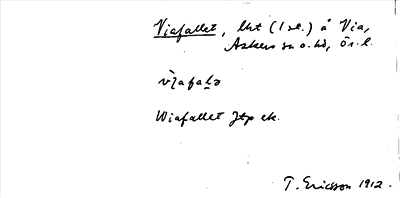 Viafallet, lht (1 st.) å Via,
Askers sn o. hd, Ör. l.
Wiafallet Jtp ek.
T. Ericsson 1912.